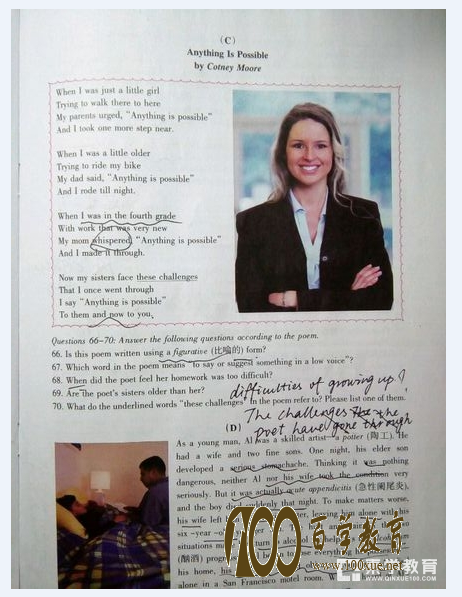 (C)
Anything Is Possible
by Cotney Moore
When I was just a little girl
Trying to walk there to here
My parents urged, "Anything is possible"
And I took one more step near.
When I was a little older
Trying to ride my bike
My dad said, "Anything is possible"
And I rode till night.
When I was in the fourth grade
With work that was very new
My mom whispered, "Anything is possible"
And I made it through.
Now my sisters face these challenges
That I once went through
I say "Anything is possible"
To them and now to you.
Questions 66-70: Answer the following questions according to the poem.
66. Is this poem written using a figurative (比喻的) form?
67. Which word in the poem means "to say or suggest something in a low voice"?
68. When did the poet feel her homework was too difficult?
69. Are the poet's sisters older than her?
70. What do the underlined words "these challenges" in the poem refer to? Please list one of them.
difficulties of growing up.
The challenges the
poet have gone through
(D)
As a young man, Al was a skilled artist, a potter (陶工). He
had a wife and two fine sons. One night, his elder son
developed a serious stomachache. Thinking it was nothing
dangerous, neither Al nor his wife took the condition very
seriously. But it was actually acute appendicitis (急性阑尾炎),
and the boy died suddenly that night. To make matters worse,
his wife left leaving him alone with his
six-year-o
situations ma alcohol help
(酗酒) prog to lose everything he
his home,
alone in a San Francisco motel room.
100百学教育
www.100xue.net
教育
WWW.QINXUE100.COM